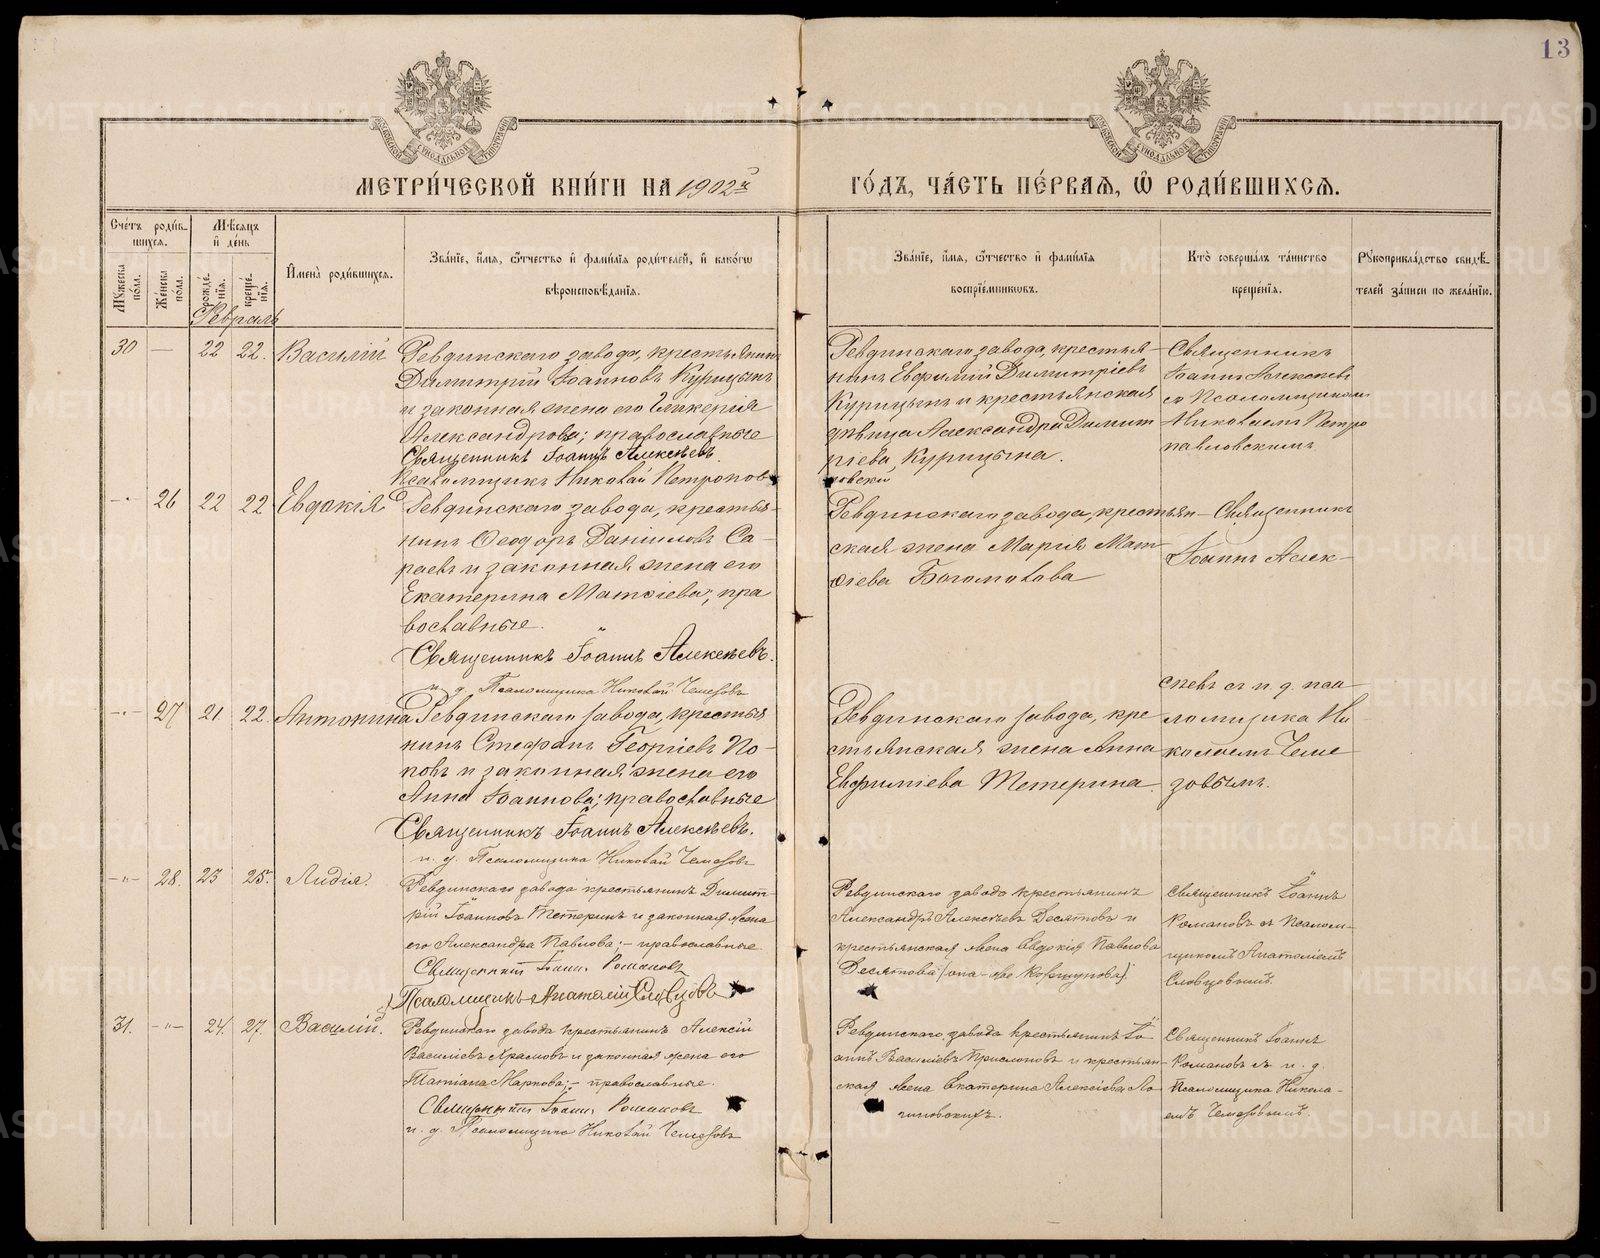 13
МЕТРИ́ЧЕСКОЙ КНИ́ГИ НА 1902й
ГО́ДЪ, ЧА́СТЬ ПЕ́РВАѦ, Ѡ҆ РОДИ́ВШИХСѦ.
Сче́тъ роди́в-
шихсѧ.
Мѣ́сѧцъ
и҆ де́нь
Мꙋ́жеска по́ла.
Же́нска по́ла.
рожде́-
нїѧ.
креще́-
нїѧ.
И҆мена̀ роди́вшихсѧ.
Зва́нїе, и҆́мѧ, ѻ҆́тчество и҆ фами́лїѧ роди́телей, и҆ како́гѡ
вѣроисповѣ́данїѧ.
Зва́нїе, и҆́мѧ, ѻ҆́тчество и҆ фами́лїѧ
воспрїе́мникѡвъ.
Кто̀ соверша́лъ та́инство
креще́нїѧ.
Рꙋкоприкла́дство свидѣ́-
телей за́писи по жела́нїю.
Февраль
30 — 22 22. Василій
Ревдинскаго завода, крестьянинъ
Димитрій Іоанновъ Курицынъ
и законная жена его Гликерія
Александрова; православные
Священникъ Іоаннъ Алексѣевъ.
Псаломщикъ Николай Петропав-
ловскій
Ревдинскаго завода, крестья-
нинъ Евфимій Димитріевъ
Курицынъ и крестьянская
дѣвица Александра Димит
ріева Курицына.
Священникъ
Іоаннъ Алексѣевъ
съ Псаломщикомъ
Николаемъ Петро
павловскимъ
—"— 26 22 22 Евдокія
Ревдинскаго завода, крестья-
нинъ Ѳеодоръ Даніиловъ Са-
раевъ и законная жена его
Екатерина Матѳіева; пра
вославные.
Священникъ Іоаннъ Алексѣевъ.
и. д. Псаломщика Николай Чемезовъ
Ревдинскаго завода, крестьян-
ская жена Марія Мат
ѳіева Богомолова
Священникъ
Іоаннъ Алек-
сѣевъ съ и. д. пса
ломщика Ни
колаемъ Чеме
зовымъ.
—"— 27 21 22. Антонина
Ревдинскаго завода, крестья
нинъ Стефанъ Георгіевъ По-
повъ и законная жена его
Анна Іоаннова; православные
Священникъ Іоаннъ Алексѣевъ.
и. д. Псаломщика Николай Чемезовъ
Ревдинскаго завода, кре
стьянская жена Анна
Евфиміева Тетерина.
—"— 28. 23 25. Лидія.
Ревдинскаго завода крестьянинъ Димит-
рій Іоанновъ Тетеринъ и законная жена
его Александра Павлова; – православные.
Священникъ Іоаннъ Романовъ
Псаломщикъ Анатолій Словцовъ
Ревдинскаго завода крестьянинъ
Александръ Алексѣевъ Десятовъ и
крестьянская жена Евдокія Павлова
Десятова (она-же Коршунова).
Священникъ Іоаннъ
Романовъ съ Псалом-
щикомъ Анатоліемъ
Словцовымъ.
31. —"— 24. 27. Василій.
Ревдинскаго завода крестьянинъ Алексій
Василіевъ Храмовъ и законная жена его
Татіана Маркова; – православные.
Священникъ Іоаннъ Романовъ
и. д. Псаломщика Николай Чемезовъ
Ревдинскаго завода крестьянинъ Іо
аннъ Василіевъ и крестьян-
ская жена Екатерина Алексіева Ло
гиновскихъ.
Священникъ Іоаннъ
Романовъ съ и. д.
Псаломщика Никола-
емъ Чемезовымъ.
METRIKI.GASO-URAL.RU